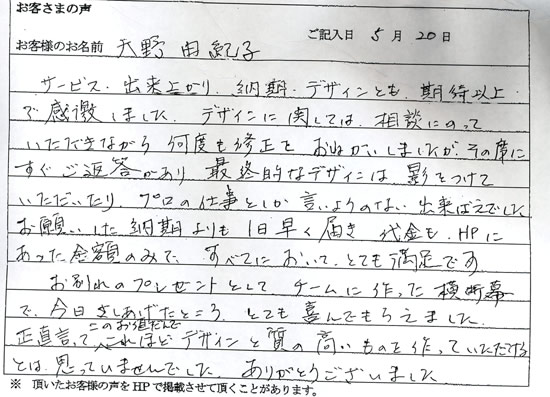 お客さまの声
ご記入日 5月20日
お客様のお名前 天野由紀子
サービス、出来上がり、納期・デザインとも、期待以上
で感激しました。デザインに関しては、相談にのって
いただきながら何度も修正をおねがいしましたが、その度に
すぐご返答があり最終的なデザインは影をつけて
いただいたり、プロの仕事としか言いようのない出来ばえでした。
お願いした納期よりも1日早く届き代金も、HPに
あった金額のみで、すべてにおいて、とても満足です
お別れのプレゼントとしてチームに作った横断幕
で、今日さしあげたところ、とても喜んでもらえました。
このお値だんで
正直言って、これほどデザインと質の高いものを作っていただける
とは、思っていませんでした。ありがとうございました。
※ 頂いたお客様の声をHPで掲載させて頂くことがあります。